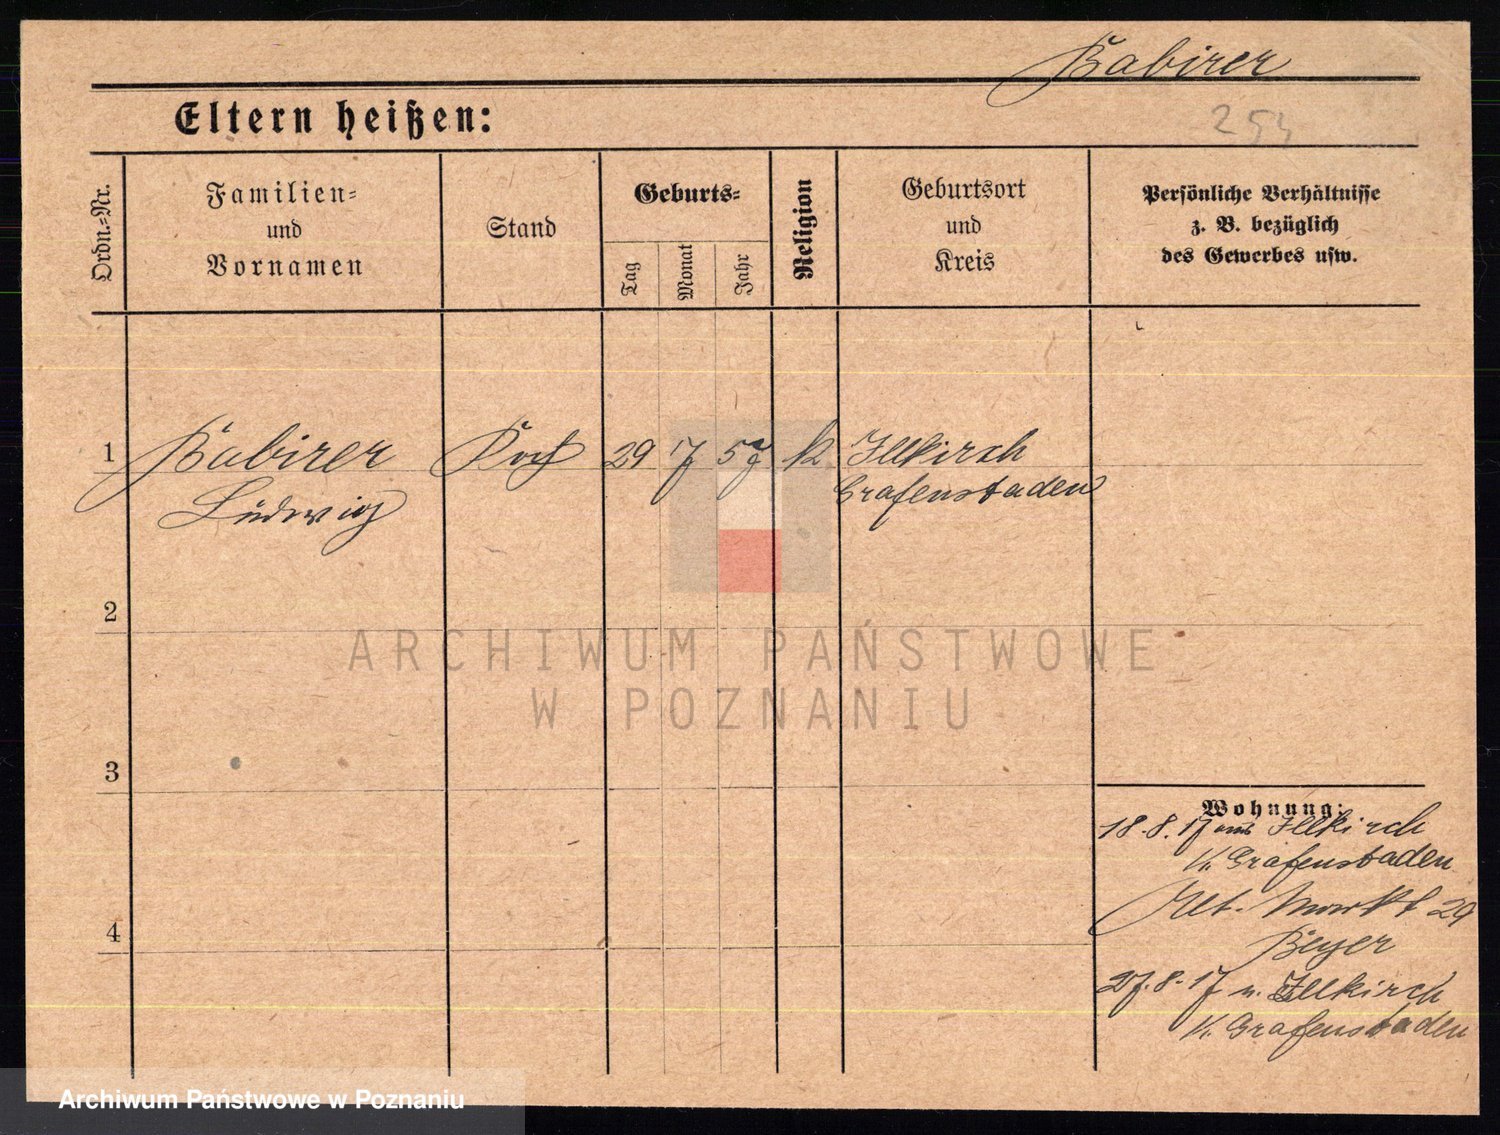 Babirer
Eltern heißen:
254
Ordn.=Nr.
Familien=
und
Vornamen
Stand
Geburts=
Tag
Monat
Jahr
Religion
Geburtsort
und
Kreis
Persönliche Verhältnisse
z. B. bezüglich
des Gewerbes usw.
1
Babirer
Ludwig
Koch
29
7
59
k
Illkirch
Grafenstaden
2
3
4
Wohnung:
18.8.17 aus Illkirch
K. Grafenstaden
Alt. Markt 29
Beyer
27.8.17 n. Illkirch
K. Grafenstaden
ARCHIWUM PAŃSTWOWE
W POZNANIU
Archiwum Państwowe w Poznaniu